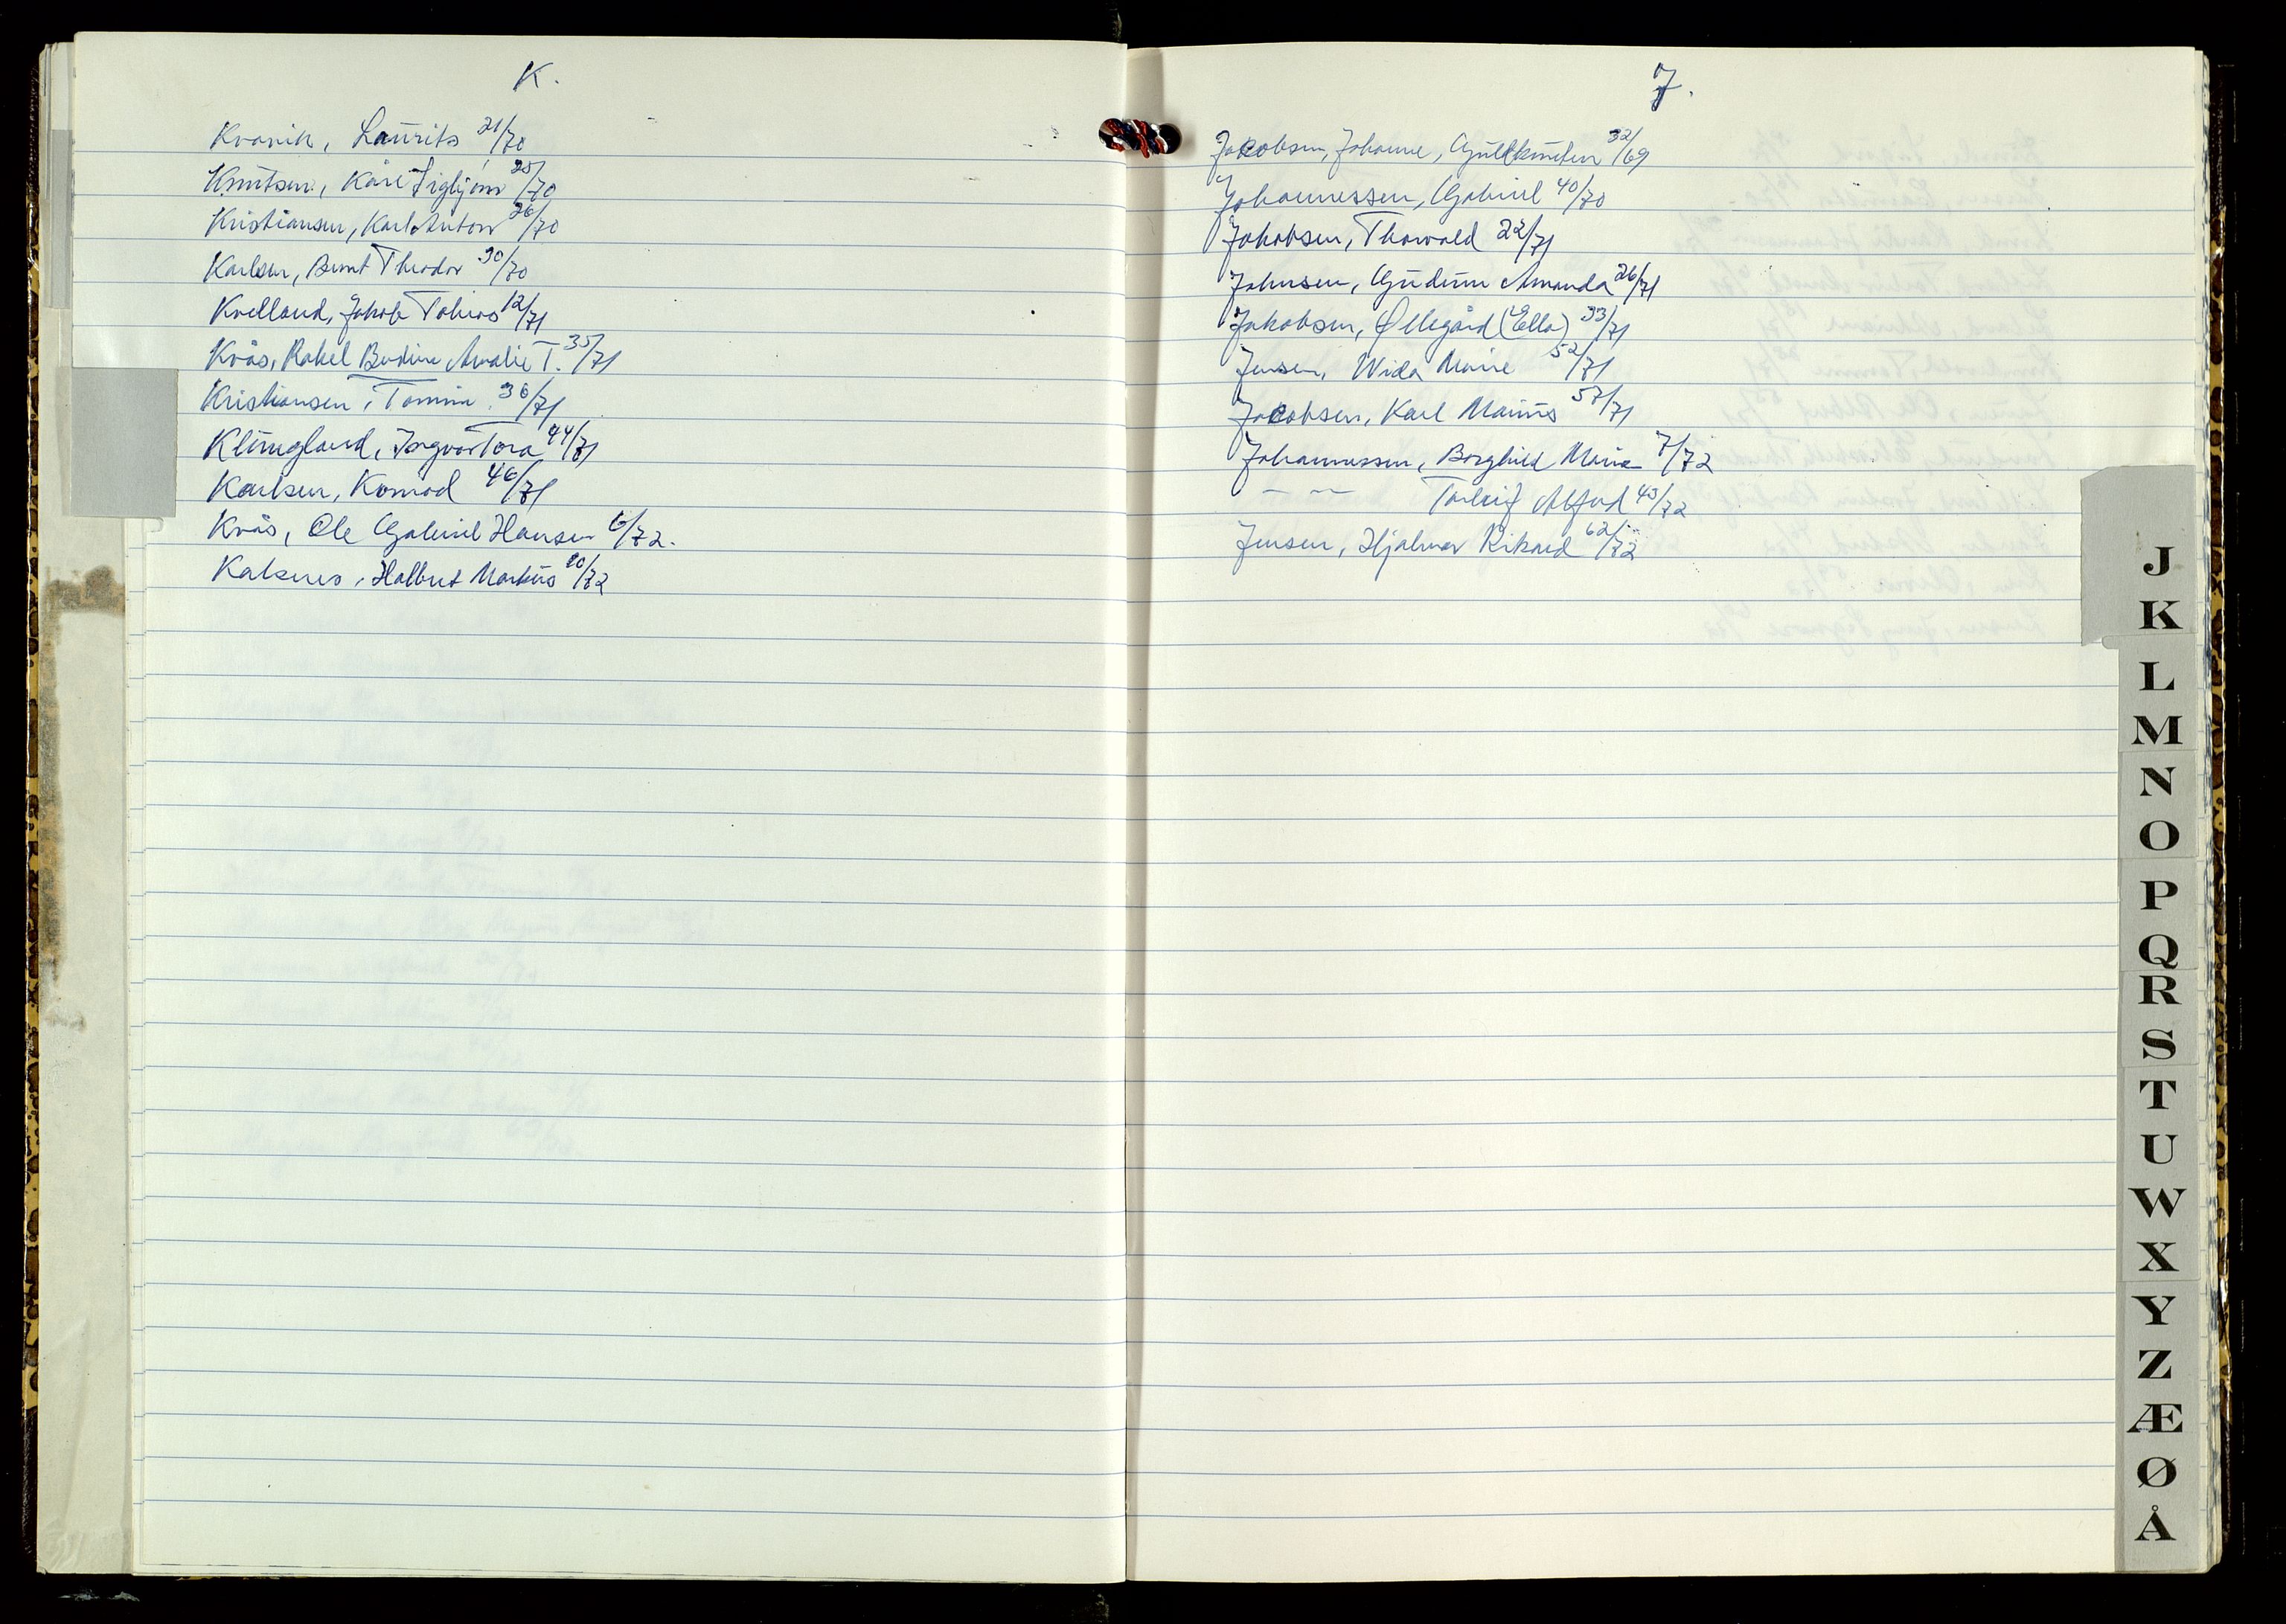 K.
Kvavik, Laurits 21/70
Knutsen, Kåre Sigbjørn 25/70
Kristiansen, Karl Anton 26/70
Karlsen, Bernt Theodor 30/70
Kvelland, Jakob Tobias 12/71
Kvås, Rakel Bertine Amalie T. 35/71
Kristiansen, Tomine 36/71
Klungland, Ingvar Tora 44/71
Karlsen, Konrad 46/71
Kvås, Ole Gabriel Hansen 6/72.
Kalsnes, Halbert Markus 20/72
J.
Jakobsen, Johanne, Gullknuten 32/69
Johannessen, Gabriel 40/70
Jakobsen, Thorvald 22/71
Johnsen, Gudrun Amanda 26/71
Jakobsen, Øllegård (Ella) 33/71
Jensen, Wida Marie 52/71
Jakobsen, Karl Marius 57/71
Johannessen, Borghild Maria 7/72
— — Torleif Alfred 43/72
Jensen, Hjalmar Rikard 62/72
J
K
L
M
N
O
P
Q
R
S
T
U
W
X
Y
Z
Æ
Ø
Å